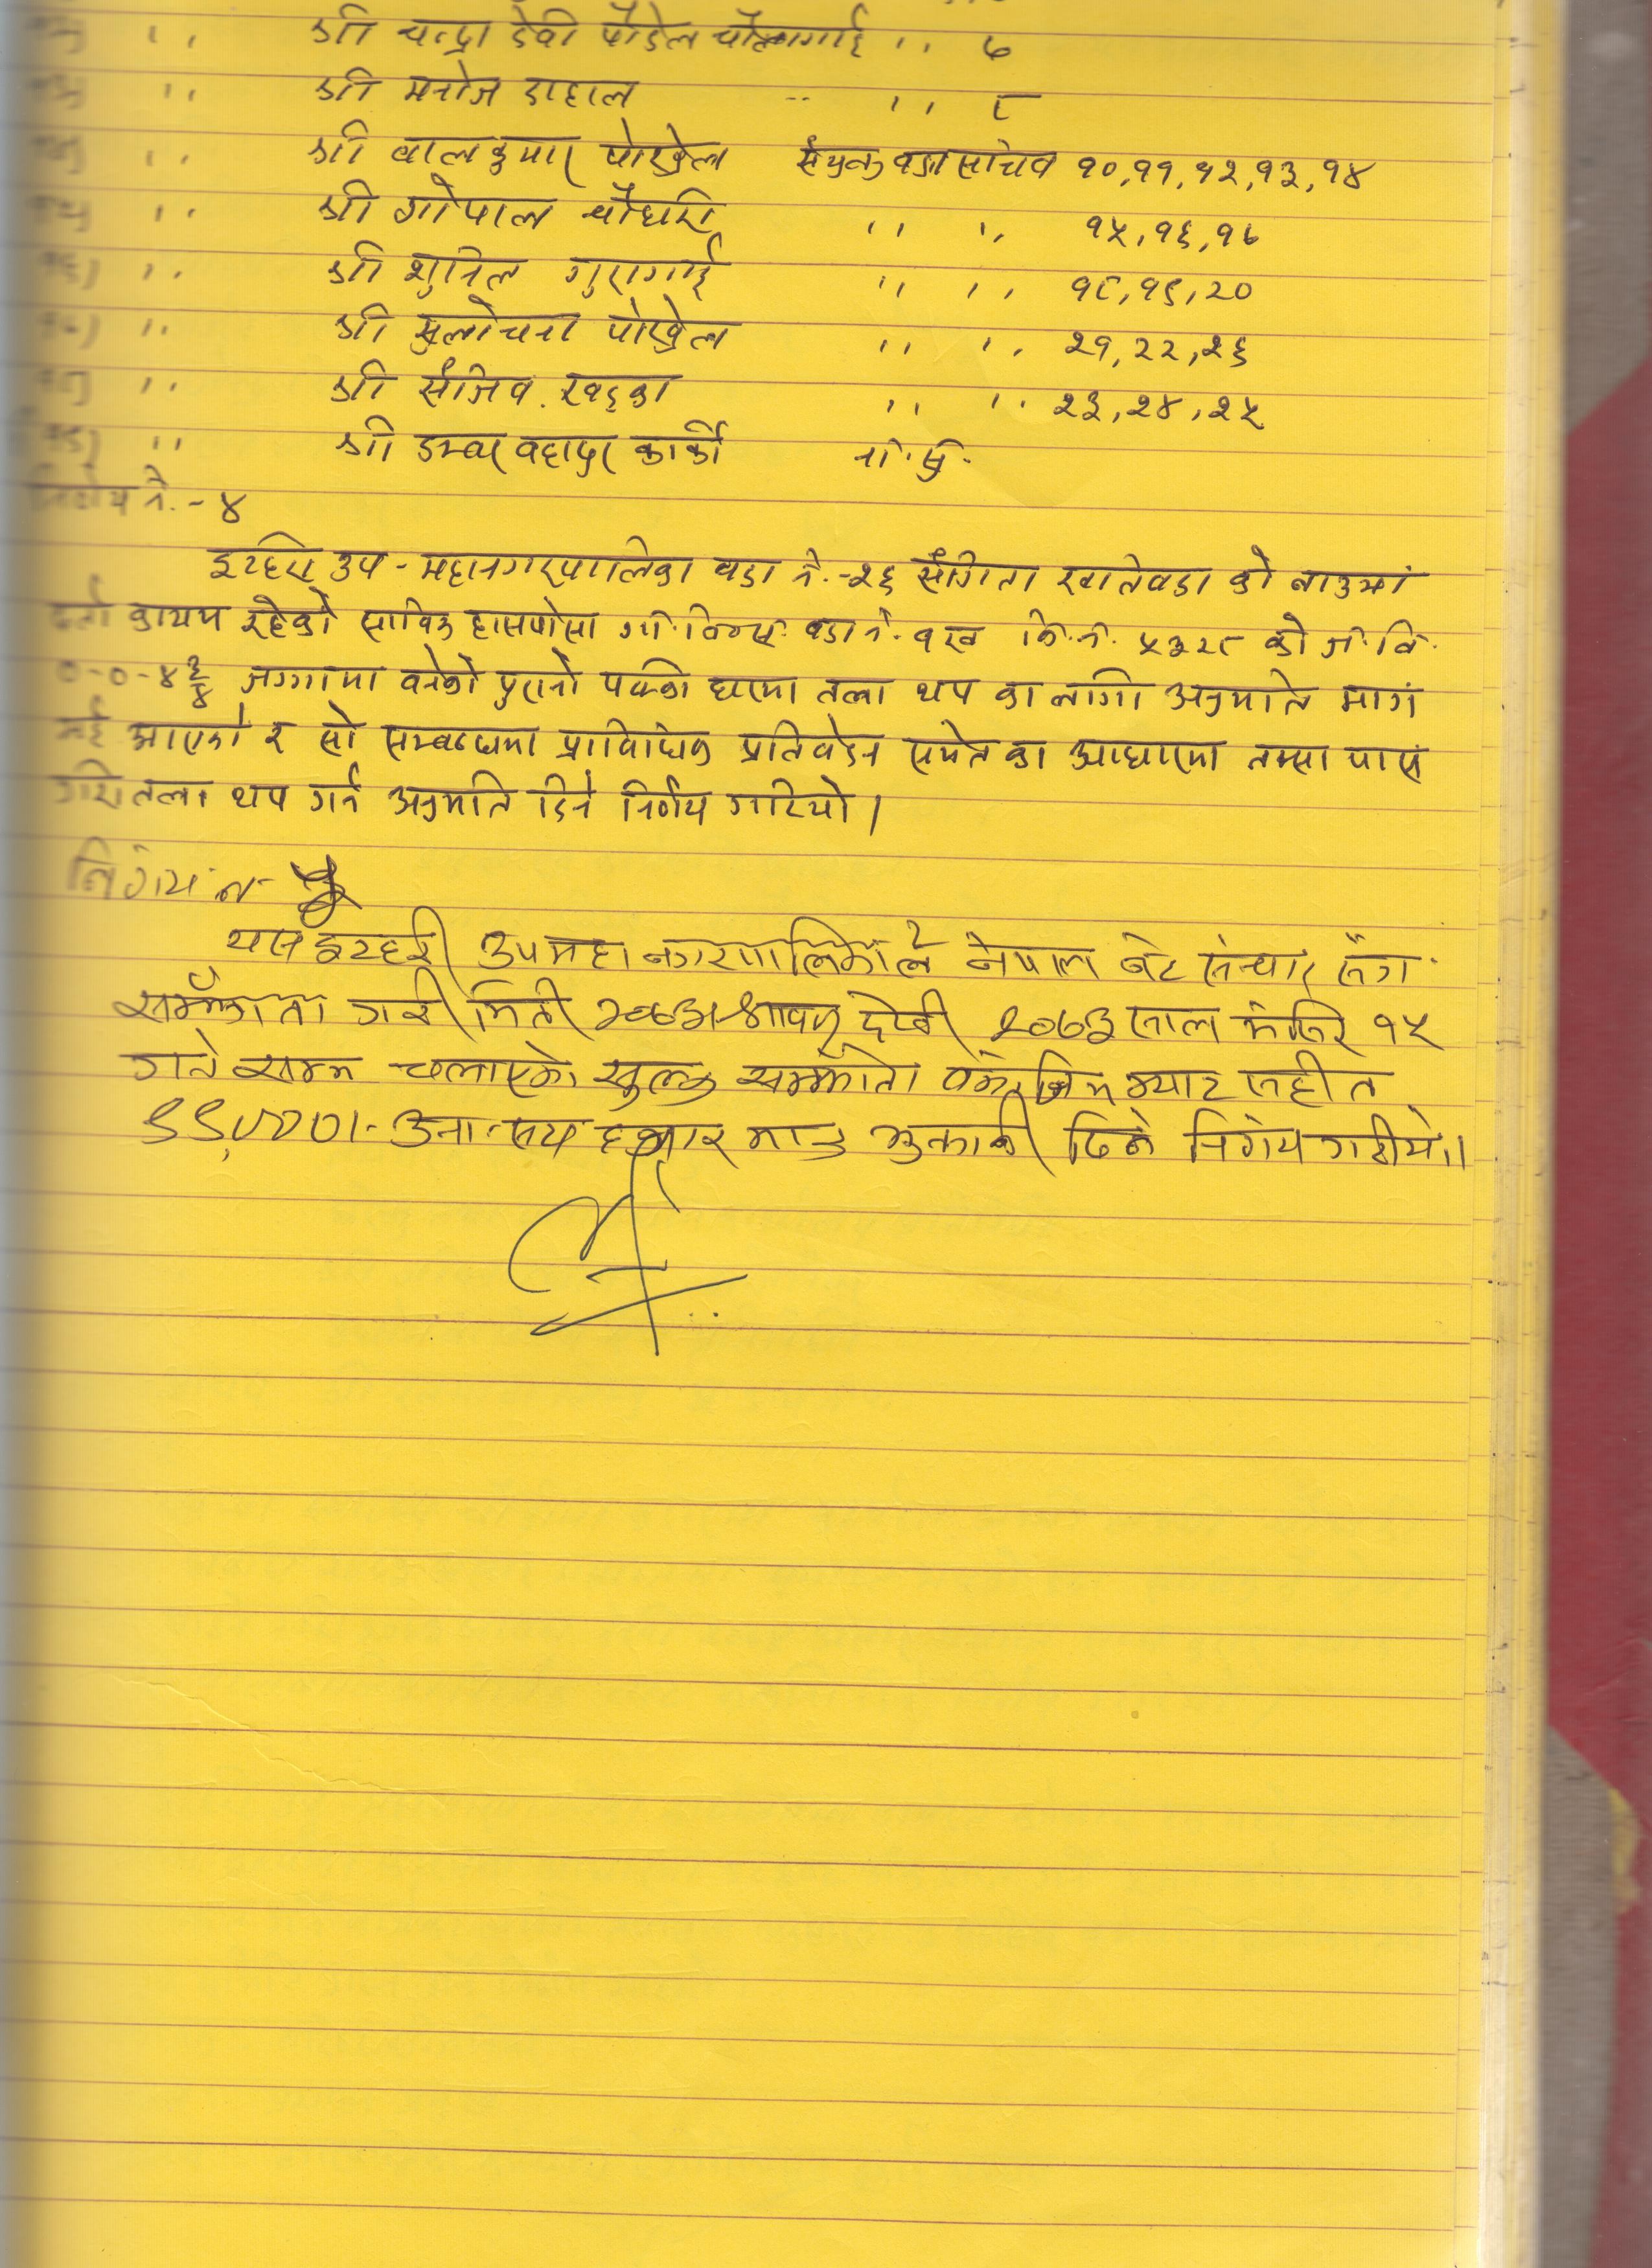 १२) '' श्री चन्द्रा देवी पौडेल चौलागाई '' ७
१३) '' श्री मनोज दाहाल '' '' ८
१४) '' श्री बालकुमार पोखेल संयुक्त वडा सचिव १०,११,१२,१३,१४
१५) '' श्री गोपाल चौधरी '' '' १५,१६,१७
१६) '' श्री शुनिल गुरागाई '' '' १८,१९,२०
१७) '' श्री सुलोचना पोखेल '' '' २१,२२,२६
१८) '' श्री संजिव खड्का '' '' २३,२४,२५
१९) '' श्री डम्वर वहादुर कार्की ना.सु.
निर्णय नं.-४
इटहरी उप-महानगरपालिका वडा नं.-२६ संगिता खतिवडा को नाउमा
दर्ता कायम रहेको साविक हासपोसा गा.वि.स. वडा नं. १ख कि.नं. ५३२८ को ज.वि.
०-०-४ ३/४ जग्गामा वनेको पुरानो पक्की घरमा तला थप का लागी अनुमति माग
भई आएको र सो सम्बन्धमा प्राविधिक प्रतिवेदन समेतका आधारमा नक्सा पास
गरी तला थप गर्न अनुमति दिने निर्णय गरियो।
निर्णय नं- ५
यस इटहरी उपमहानगरपालिकाले नेपाल नेट संन्चार सँग
सम्झौता गरी मिती २०७३ श्रावण देखी २०७३ साल मंसिर १५
गते सम्म चलाएको सुल्क सम्झौता भ्याट सहीत
९९,०००।- उनान्सय हजार मात्र भुक्तानी दिने निर्णय गरीयो।।